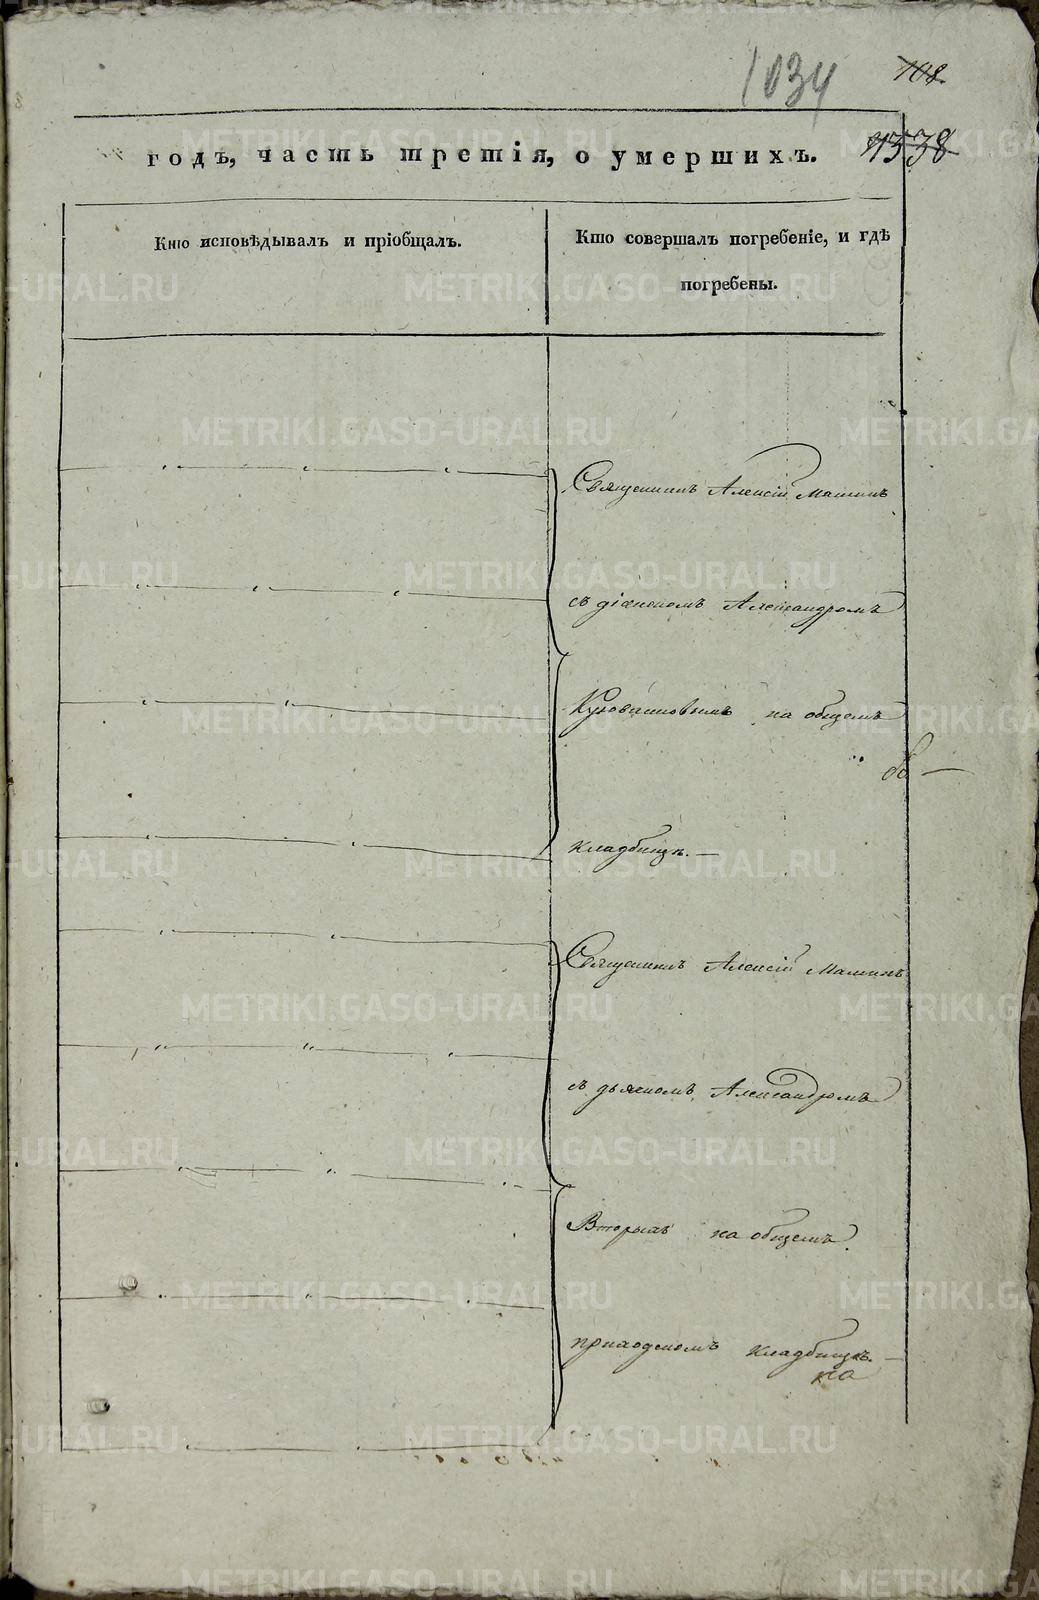 1034
108
1538
годъ, часть третія, о умершихъ.
Кто исповѣдывалъ и пріобщалъ.
Кто совершалъ погребеніе, и гдѣ
погребены.
Священникъ Алексій
съ діакономъ Александромъ
на общемъ
кладбищѣ.—
Священникъ Алексій
съ дьячкомъ Александромъ
Вторыхъ на общемъ
приходскомъ кладбищѣ.—
на
METRIKI.GASO-URAL.RU